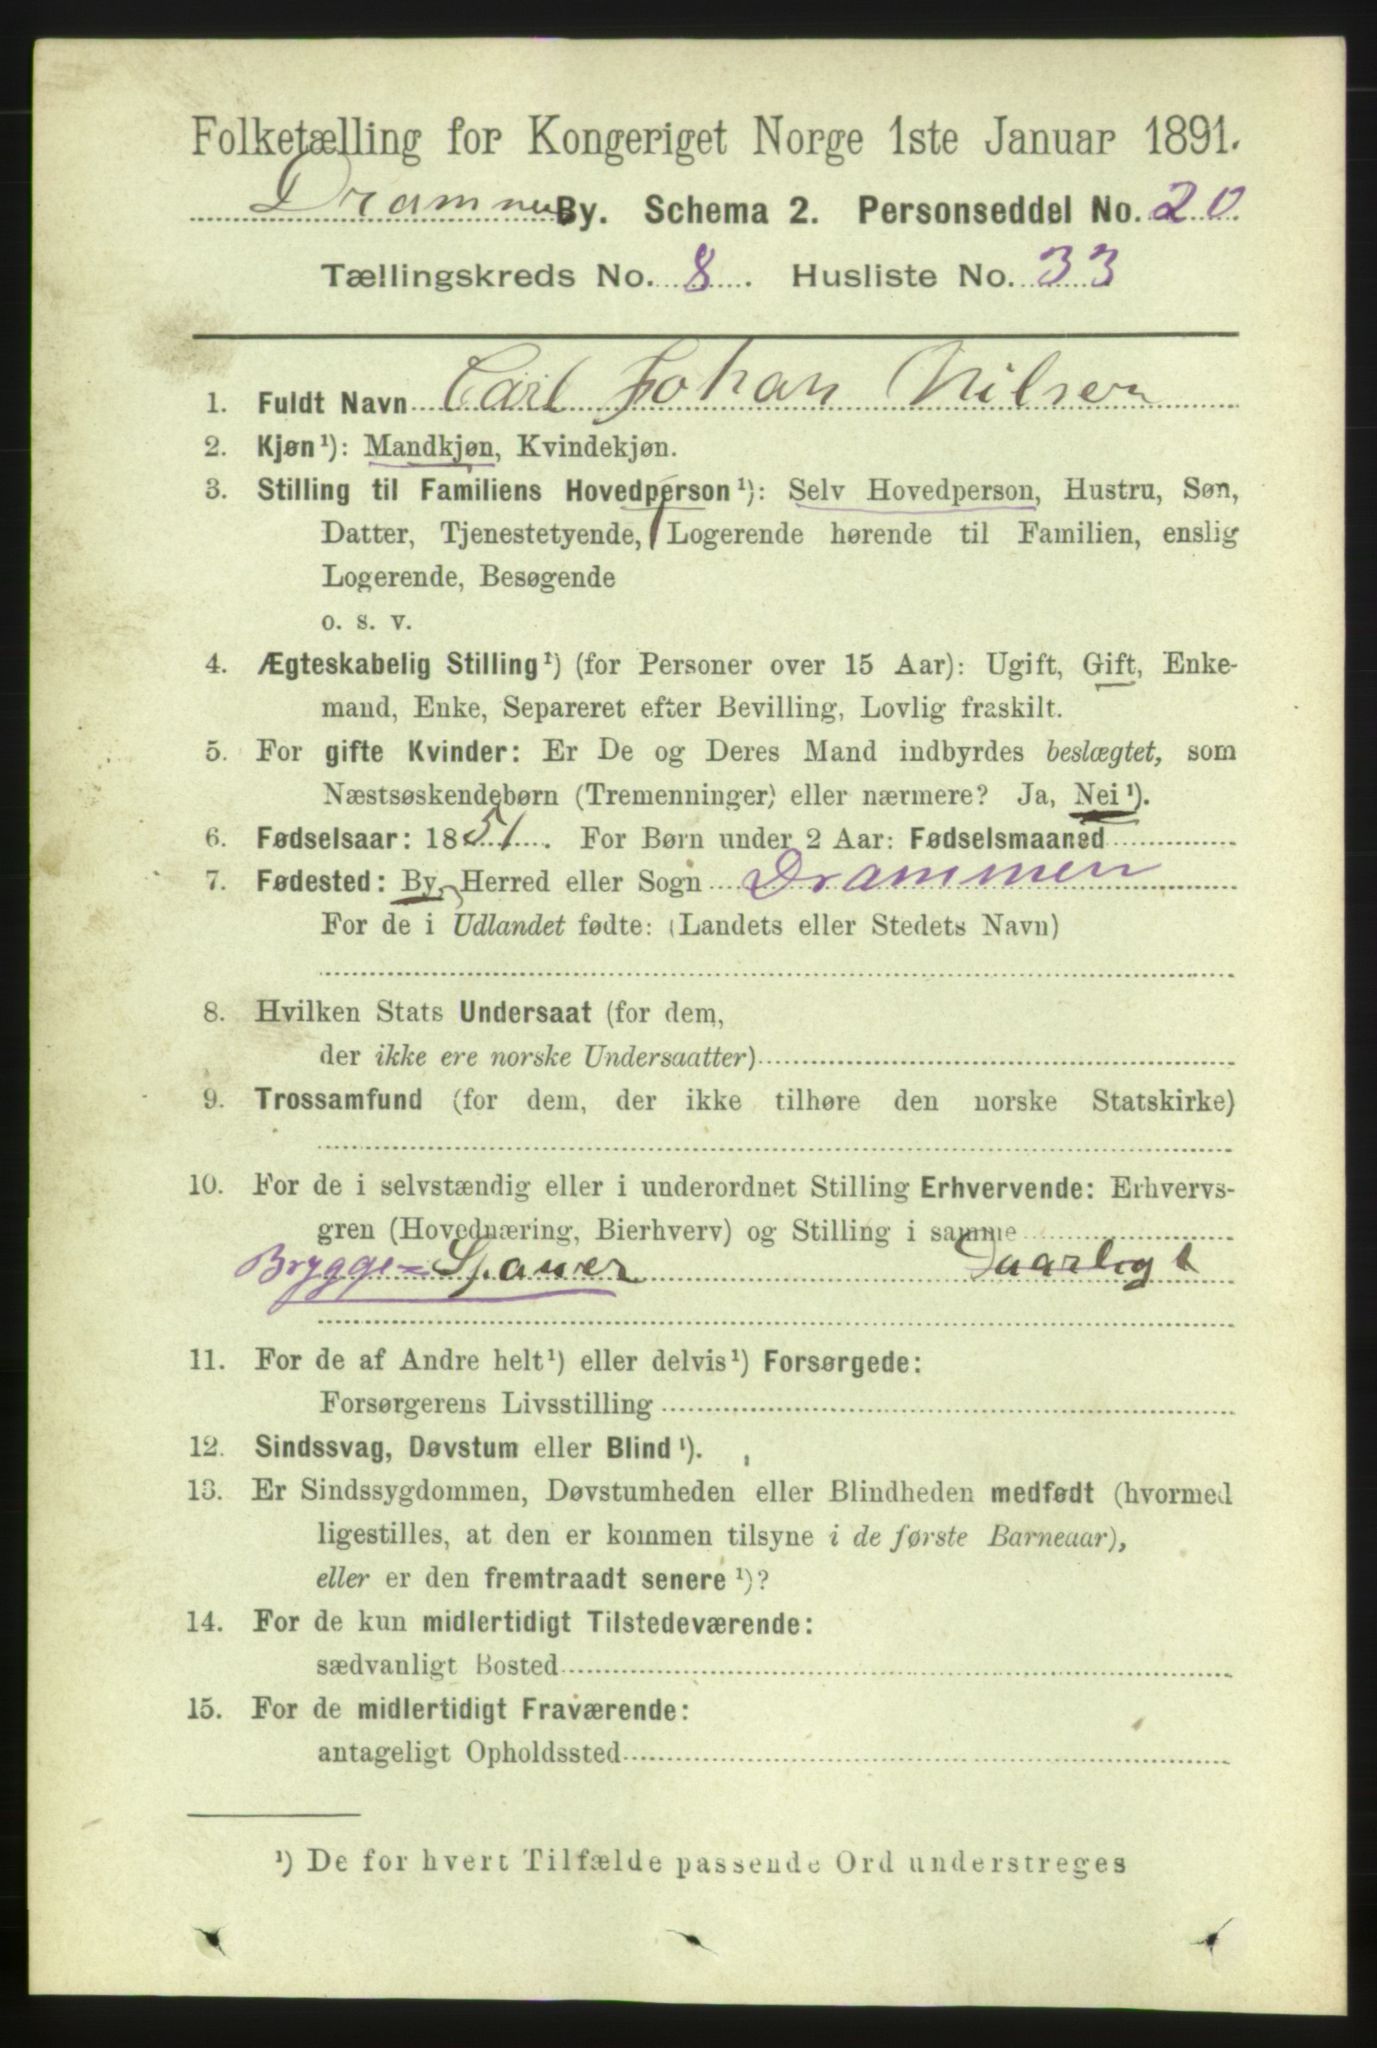 Folketælling for Kongeriget Norge 1ste Januar 1891.
Drammens By. Schema 2. Personseddel No. 20
Tællingskreds No. 8. Husliste No. 33
1. Fuldt Navn Carl Johan Nilsen
2. Kjøn¹): Mandkjøn, Kvindekjøn.
3. Stilling til Familiens Hovedperson¹): Selv Hovedperson, Hustru, Søn,
Datter, Tjenestetyende, Logerende hørende til Familien, enslig
Logerende, Besøgende
o. s. v.
4. Ægteskabelig Stilling¹) (for Personer over 15 Aar): Ugift, Gift, Enke-
mand, Enke, Separeret efter Bevilling, Lovlig fraskilt.
5. For gifte Kvinder: Er De og Deres Mand indbyrdes beslægtet, som
Næstsøskendebørn (Tremenninger) eller nærmere? Ja, Nei¹).
6. Fødselsaar: 1851. For Børn under 2 Aar: Fødselsmaaned
7. Fødested: By, Herred eller Sogn Drammen
For de i Udlandet fødte: (Landets eller Stedets Navn)
8. Hvilken Stats Undersaat (for dem,
der ikke ere norske Undersaatter)
9. Trossamfund (for dem, der ikke tilhøre den norske Statskirke)
10. For de i selvstændig eller i underordnet Stilling Erhvervende: Erhvervs-
gren (Hovednæring, Bierhverv) og Stilling i samme
Brygge=
11. For de af Andre helt¹) eller delvis¹) Forsørgede:
Forsørgerens Livsstilling
12. Sindssvag, Døvstum eller Blind¹).
13. Er Sindssygdommen, Døvstumheden eller Blindheden medfødt (hvormed
ligestilles, at den er kommen tilsyne i de første Barneaar),
eller er den fremtraadt senere¹)?
14. For de kun midlertidigt Tilstedeværende:
sædvanligt Bosted
15. For de midlertidigt Fraværende:
antageligt Opholdssted
¹) De for hvert Tilfælde passende Ord understreges